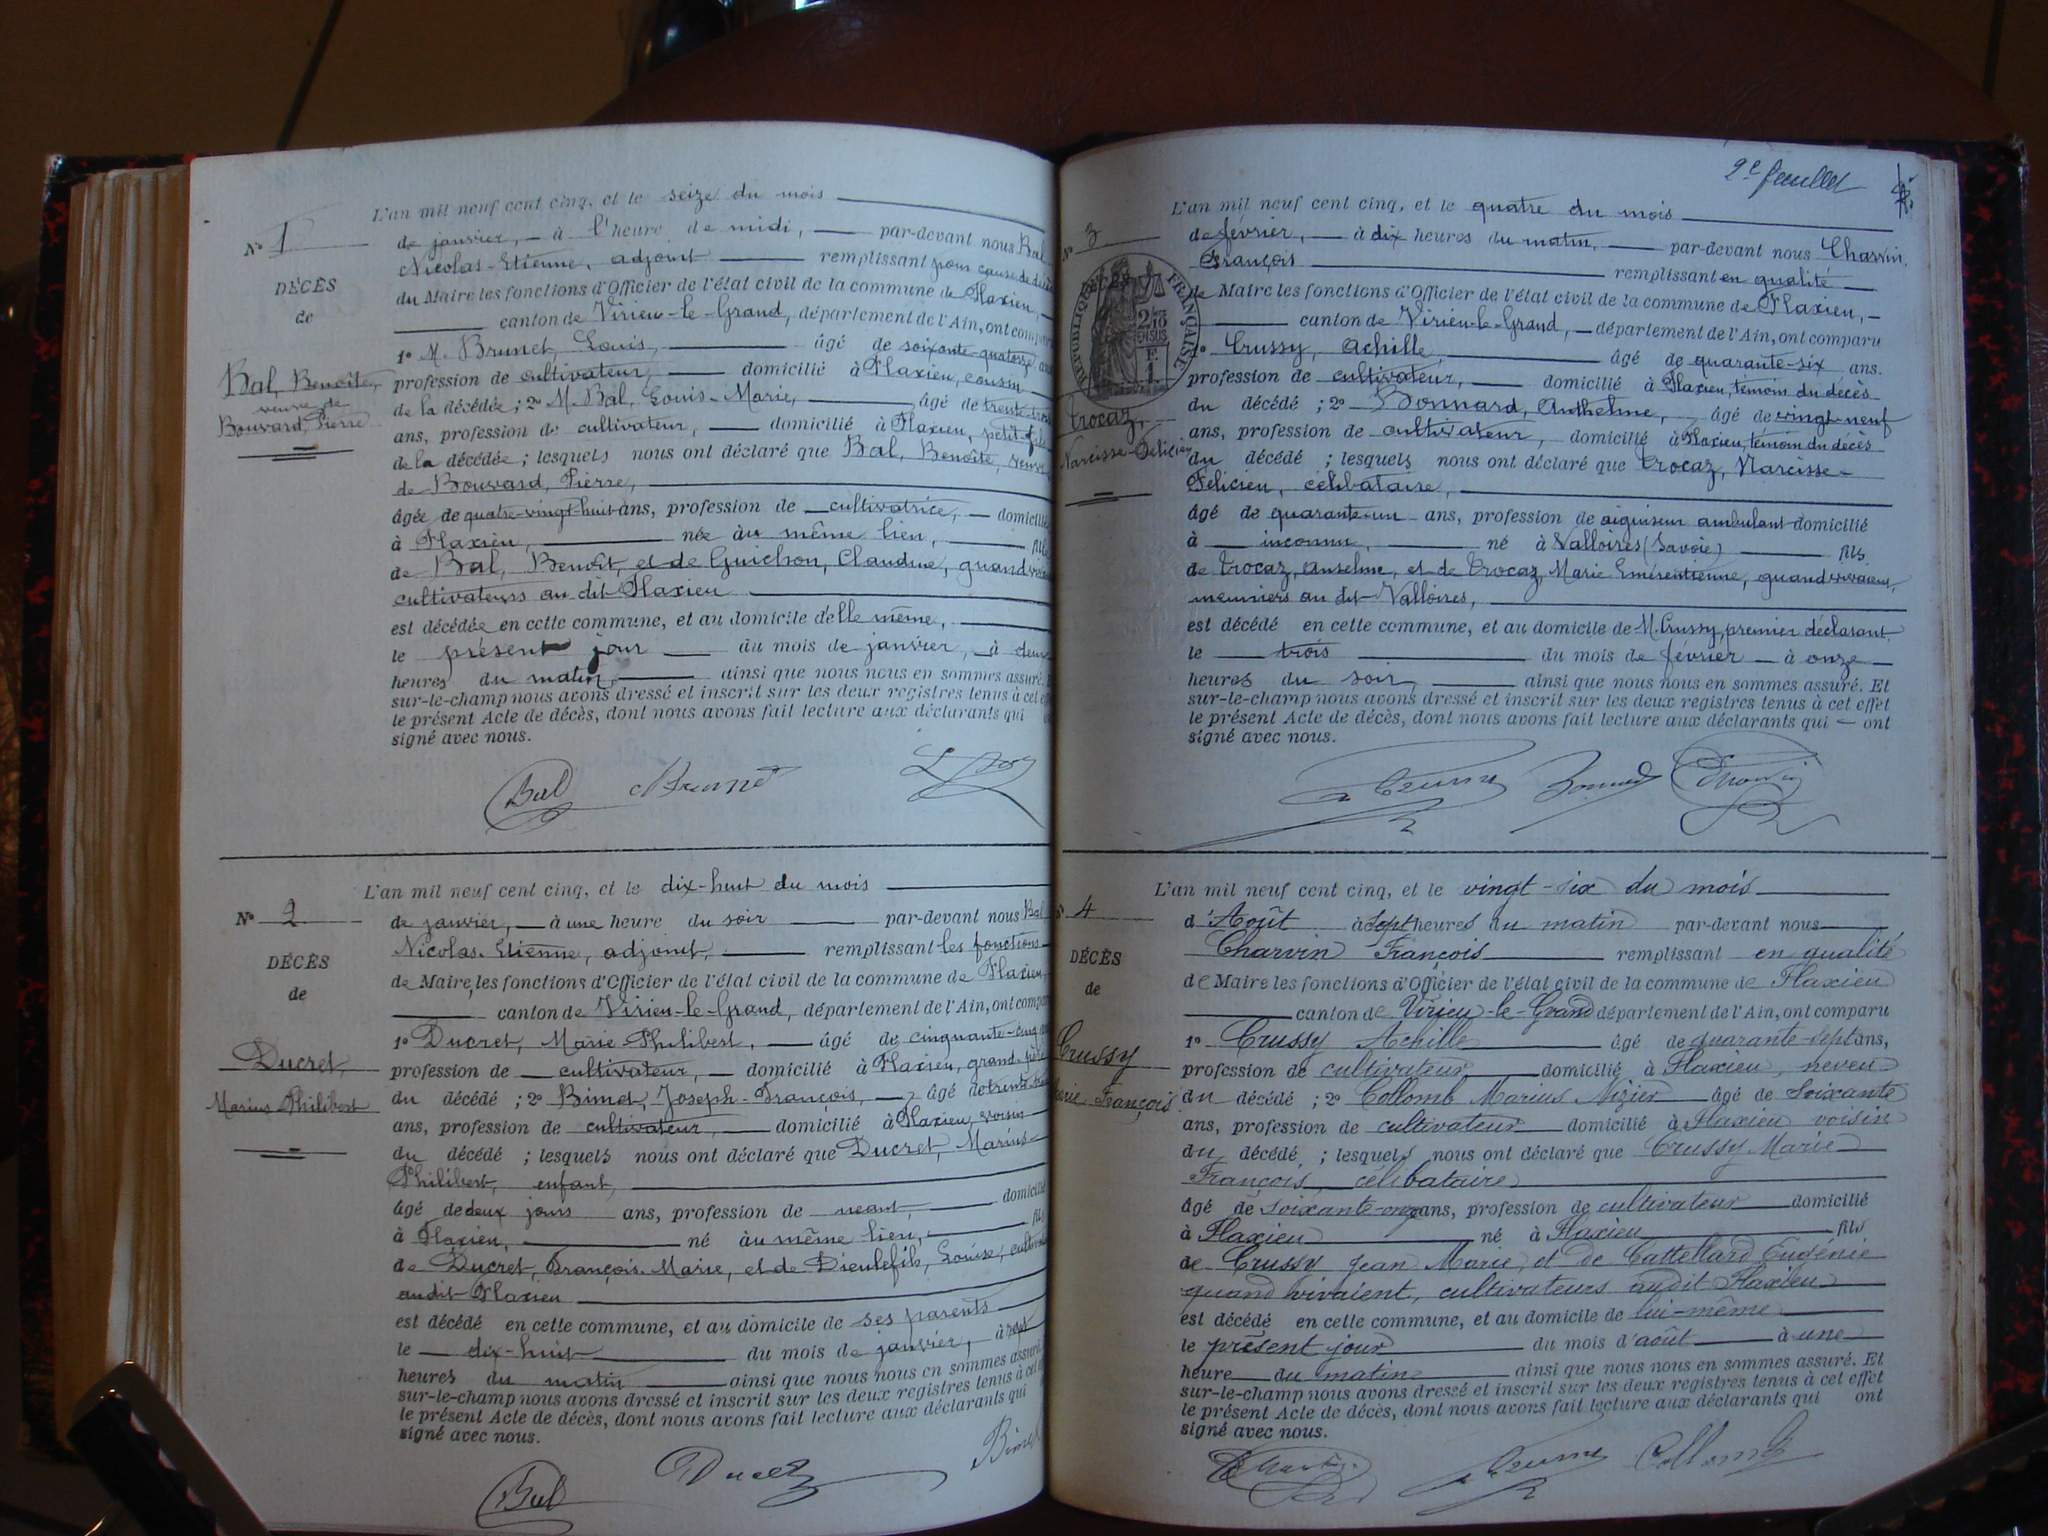 L'an mil neuf cent cinq, et le seize du mois
N° 1
de janvier, à l'heure de midi, par-devant nous Bal
Nicolas-Etienne, adjoint remplissant pour cause de
DÉCÈS
du Maire les fonctions d'Officier de l'état civil de la commune de Flaxieu,
de
canton de Virieu-le-Grand, département de l'Ain, ont comparu
1° M. Brunet, Louis, âgé de soixante-quatorze ans
Bal, Benoîte,
profession de cultivateur, domicilié à Flaxieu, cousin
veuve de
de la décédée ; 2° M. Bal, Louis-Marie, âgé de trente-trois
Bouvard, Pierre
ans, profession de cultivateur, domicilié à Flaxieu, petit-fils
de la décédée ; lesquels nous ont déclaré que Bal, Benoîte, veuve
de Bouvard, Pierre,
âgée de quatre-vingt-huit ans, profession de cultivatrice, domiciliée
à Flaxieu, née au même lieu, fille
de Bal, Benoît, et de Guichon, Claudine, quand
cultivateurs au dit Flaxieu
est décédée en cette commune, et au domicile d'elle même,
le présent jour du mois de janvier, à deux
heures du matin, ainsi que nous nous en sommes assuré. Et
sur-le-champ nous avons dressé et inscrit sur les deux registres tenus à cet effet
le présent Acte de décès, dont nous avons fait lecture aux déclarants qui
signé avec nous.
Bal Brunet
L'an mil neuf cent cinq, et le dix-huit du mois
N° 2
de janvier, à une heure du soir par-devant nous Bal
Nicolas-Etienne, adjoint, remplissant les fonctions
DÉCÈS
de Maire, les fonctions d'Officier de l'état civil de la commune de Flaxieu,
de
canton de Virieu-le-Grand, département de l'Ain, ont comparu
1° Ducret, Marie-Philibert, âgé de cinquante-cinq ans
Ducret,
profession de cultivateur, domicilié à Flaxieu, grand-père
Marius Philibert
du décédé ; 2° Bimet, Joseph-François, âgé de
ans, profession de cultivateur, domicilié à Flaxieu, voisin
du décédé ; lesquels nous ont déclaré que Ducret, Marius-
Philibert, enfant,
âgé de deux jours ans, profession de néant, domicilié
à Flaxieu, né au même lieu, fils
de Ducret, François-Marie, et de Dieulefils, Louise,
au dit Flaxieu
est décédé en cette commune, et au domicile de ses parents
le dix-huit du mois de janvier, à
heures du matin ainsi que nous nous en sommes assuré.
sur-le-champ nous avons dressé et inscrit sur les deux registres tenus à cet
le présent Acte de décès, dont nous avons fait lecture aux déclarants qui
signé avec nous.
Bal Ducret Bimet
2e feuillet
L'an mil neuf cent cinq, et le quatre du mois
N° 3
de février, à dix heures du matin, par-devant nous Charvin,
François remplissant en qualité
DÉCÈS
RÉPUBLIQUE FRANÇAISE
2/10 EN SUS
F. 1
de Maire les fonctions d'Officier de l'état civil de la commune de Flaxieu,
canton de Virieu-le-Grand, département de l'Ain, ont comparu
1° Crussy, Achille, âgé de quarante-six ans.
profession de cultivateur, domicilié à Flaxieu, témoin du décès
Trocaz,
du décédé ; 2° Bonnard, Anthelme, âgé de vingt-neuf
Narcisse-Félicien
ans, profession de cultivateur, domicilié à Flaxieu, témoin du décès
du décédé ; lesquels nous ont déclaré que Trocaz, Narcisse-
Félicien, célibataire,
âgé de quarante-un ans, profession de aiguiseur ambulant domicilié
à inconnu, né à Valloires (Savoie) fils
de Trocaz, Anselme, et de Trocaz, Marie Emérentienne, quand vivaient,
meuniers au dit Valloires,
est décédé en cette commune, et au domicile de M. Crussy, premier déclarant
le trois du mois de février à onze
heures du soir ainsi que nous nous en sommes assuré. Et
sur-le-champ nous avons dressé et inscrit sur les deux registres tenus à cet effet
le présent Acte de décès, dont nous avons fait lecture aux déclarants qui ont
signé avec nous.
Crussy Bonnard Charvin
L'an mil neuf cent cinq, et le vingt-six du mois
N° 4
d'Août à sept heures du matin par-devant nous
Charvin François remplissant en qualité
DÉCÈS
de Maire les fonctions d'Officier de l'état civil de la commune de Flaxieu
de
canton de Virieu-le-Grand département de l'Ain, ont comparu
1° Crussy Achille âgé de quarante-sept ans,
Crussy
profession de cultivateur domicilié à Flaxieu, neveu
Marie François
du décédé ; 2° Collomb Marius Nizier âgé de soixante
ans, profession de cultivateur domicilié à Flaxieu voisin
du décédé ; lesquels nous ont déclaré que Crussy Marie
François, célibataire
âgé de soixante-onze ans, profession de cultivateur domicilié
à Flaxieu né à Flaxieu fils
de Crussy Jean Marie, et de Cattelland Eugénie
quand vivaient, cultivateurs audit Flaxieu
est décédé en cette commune, et au domicile de lui-même
le présent jour du mois d'août à une
heure du matin ainsi que nous nous en sommes assuré. Et
sur-le-champ nous avons dressé et inscrit sur les deux registres tenus à cet effet
le présent Acte de décès, dont nous avons fait lecture aux déclarants qui ont
signé avec nous.
Charvin Crussy Collomb